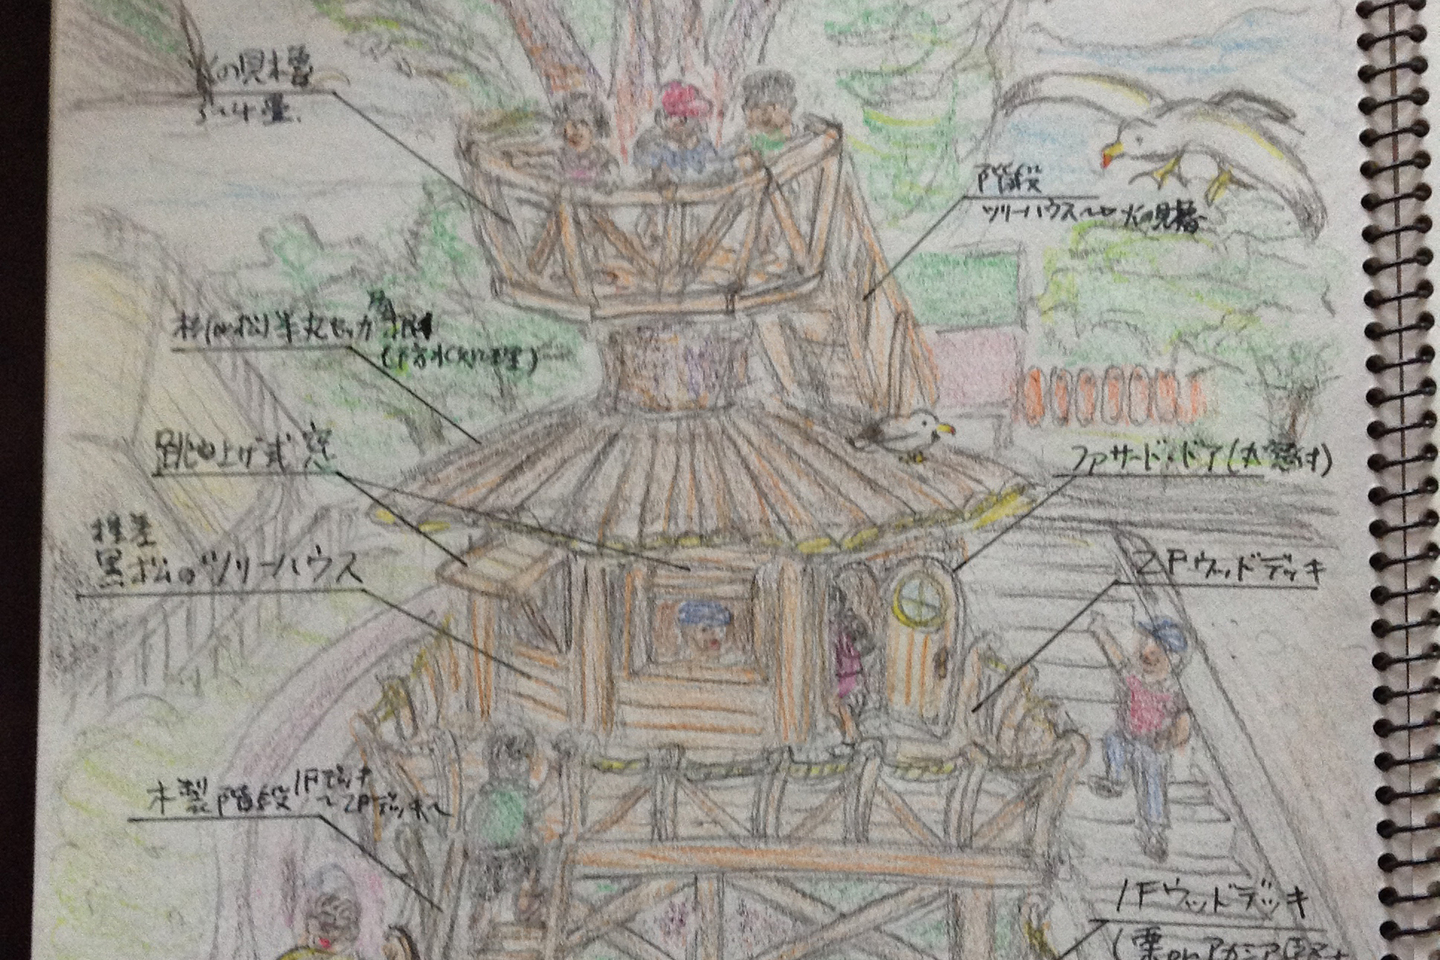 火の見櫓
3〜4畳
階段
ツリーハウス〜火の見櫓
杉(or松)半丸セッカ
(防水処理)
跳ね上げ式窓
ファサード・ドア(丸窓付)
黒松のツリーハウス
2Fウッドデッキ
木製階段 1Fデッキ
〜2Fデッキへ
1Fウッドデッキ
(栗orアカシア